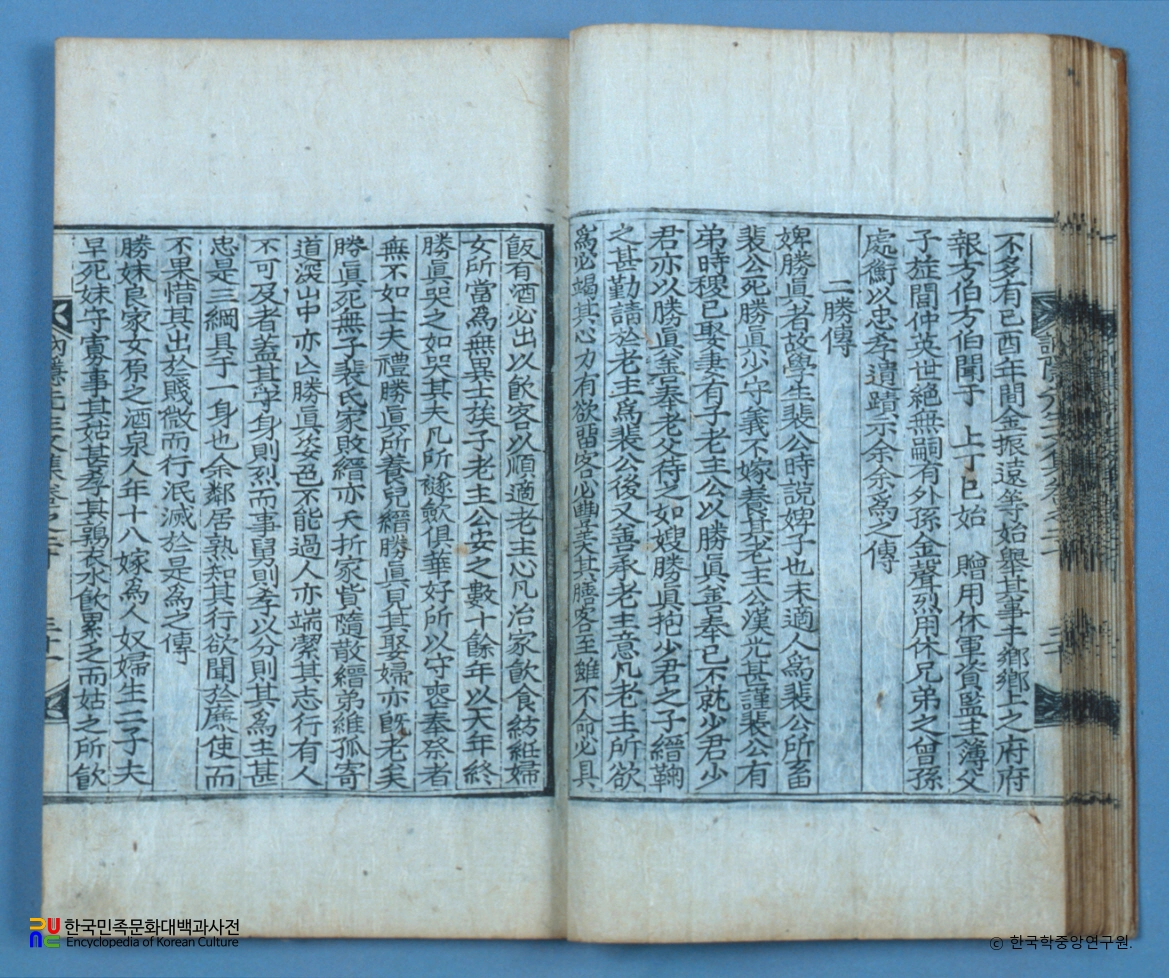 不多有己酉年間金振遠等始擧其事于鄕鄕士之府府
報方伯方伯聞于 上丁巳始 贈用休軍資監主簿父
子旌閭仲英世絶無嗣有外孫金聲烈用休兄弟之曾孫
處衡以忠孝遺蹟示余余爲之傳
二勝傳
婢勝眞者故學生裴公時說婢子也未適人爲裴公所畜
裴公死勝眞少守義不嫁養其老主公漢光甚謹裴公有
弟時稷已娶妻有子老主公以勝眞善奉已不就少君少
君亦以勝眞善奉老父待之如嫂勝眞抱少君之子縉鞠
之甚勤請於老主爲裴公後又善承老主意凡老主所欲
爲必竭其心力有欲留客必豊美其膳客至雖不命必具
飯有酒必出以飮客以順適老主心凡治家飮食紡紝婦
女所當爲無異士族子老主公安之數十餘年以天年終
勝眞哭之如哭其夫凡所襚斂俱華好所以守喪奉祭者
無不如士夫禮勝眞所養兒縉勝眞見其娶婦亦旣老矣
勝眞死無子裴氏家敗縉亦夭折家貲隨散縉弟維孤寄
道深山中亦亡勝眞姿色不能過人亦端潔其志行有人
不可及者蓋其守身則烈而事舅則孝以分則其爲主甚
忠是三綱具于一身也余鄰居熟知其行欲聞於廉使而
不果惜其出於賤微而行泯滅於是爲之傳
勝妹良家女原之酒泉人年十八嫁爲人奴婦生二子夫
早死妹守寡事其姑甚孝其鶉衣水飮累之而姑之所飮
한국민족문화대백과사전
Encyclopedia of Korean Culture
© 한국학중앙연구원.